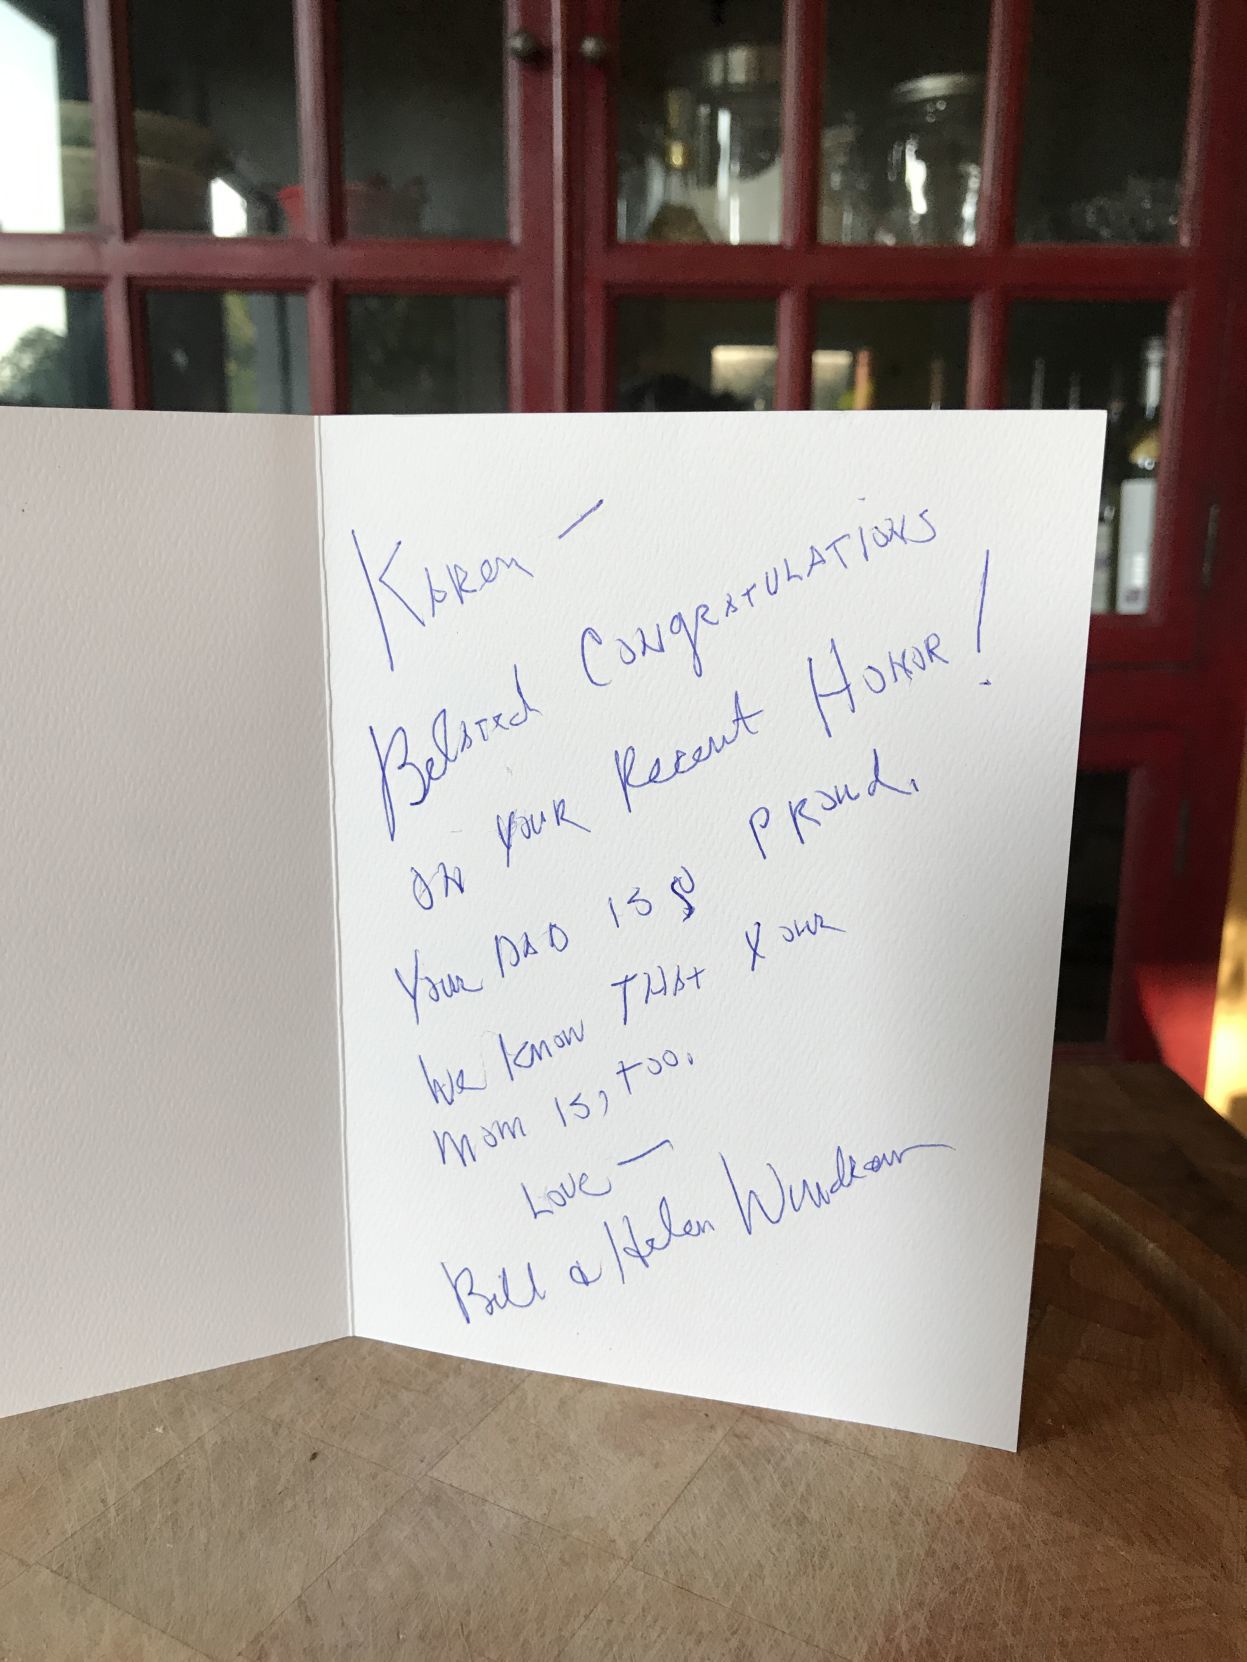 Karen —
Belated Congratulations
on your Recent Honor!
Your DAD is proud.
We know that your
mom is, too.
Love —
Bill & Helen